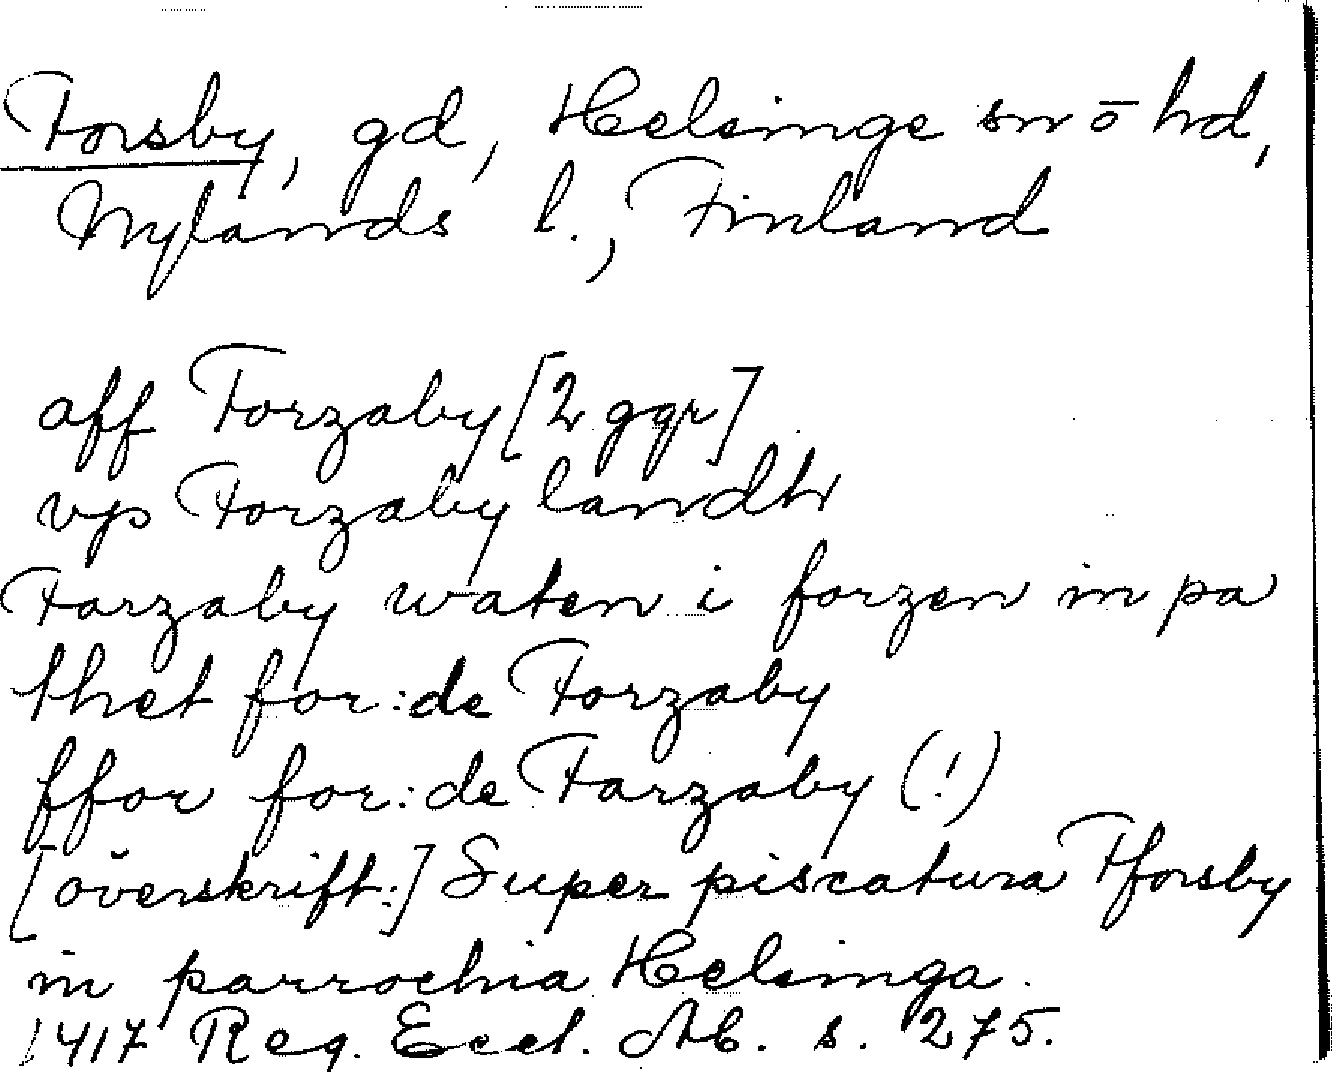 Forsby, gd, Helsinge sn o hd,
Nylands l., Finland
aff Forzaby [2 ggr]
vp Forzaby landh
Forzaby waten i forzen in pa
thet for:de Forzaby
ffor for:de Farzaby (!)
[överskrift:] Super piscatura Fforsby
in parrochia Helsinga.
1417 Reg. Eccl. Ab. s. 275.